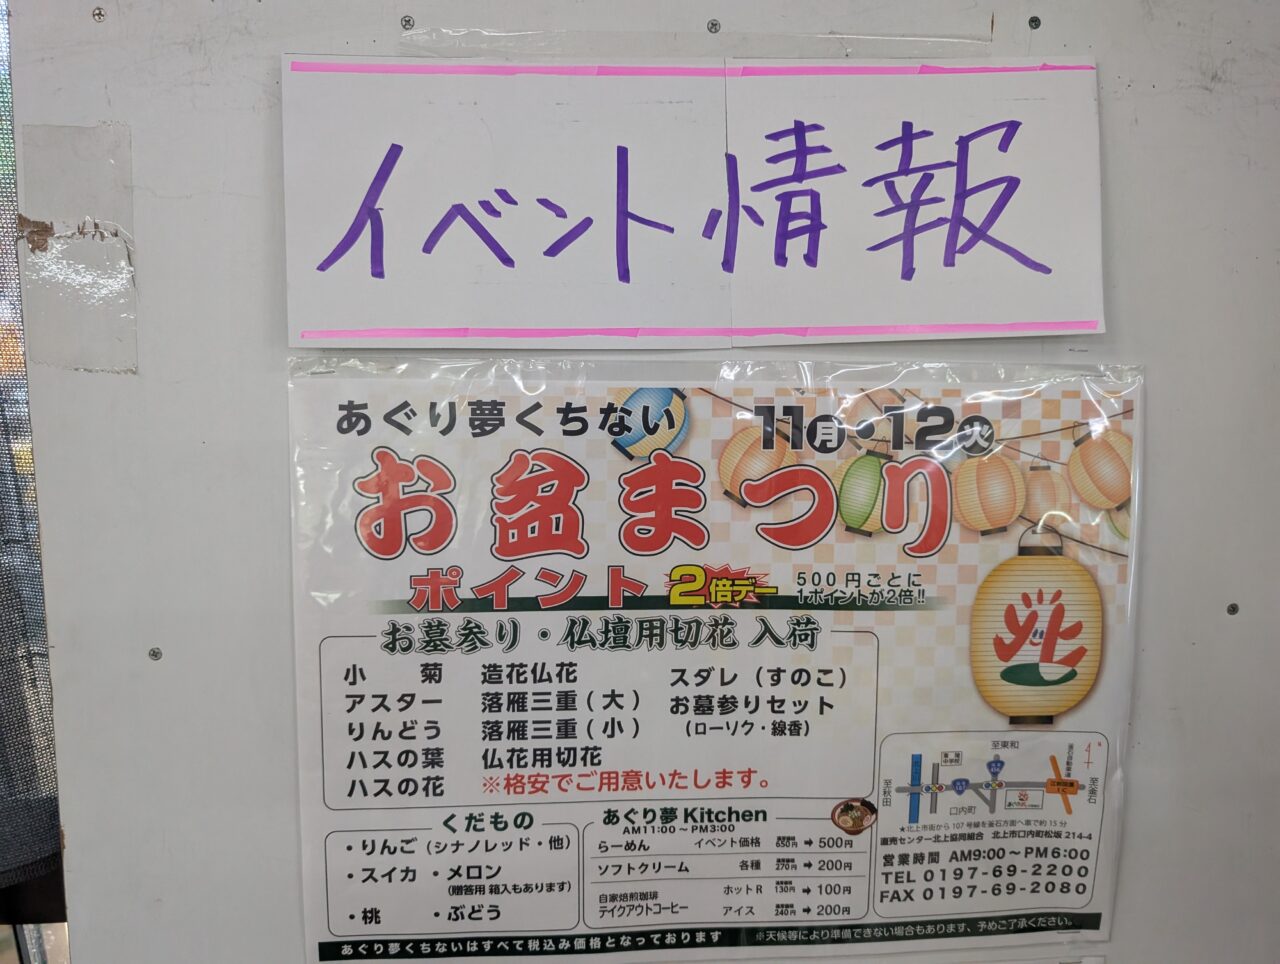 イベント情報
あぐり夢くちない 11月・12火
お盆まつり
ポイント 2倍デー 500円ごとに
1ポイントが2倍!!
お墓参り・仏壇用切花 入荷
小菊 造花仏花 スダレ(すのこ)
アスター 落雁三重(大) お墓参りセット
りんどう 落雁三重(小) (ローソク・線香)
ハスの葉 仏花用切花
ハスの花 ※格安でご用意いたします。
くだもの
・りんご(シナノレッド・他)
・スイカ ・メロン
(贈答用 箱入もあります)
・桃 ・ぶどう
あぐり夢 Kitchen
AM11:00~PM3:00
らーめん イベント価格 通常価格 650円 ➡ 500円
ソフトクリーム 各種 通常価格 270円 ➡ 200円
自家焙煎珈琲
テイクアウトコーヒー
ホットR 通常価格 130円 ➡ 100円
アイス 通常価格 240円 ➡ 200円
至東和
至秋田
口内町
釜石自動車道
至釜石
★北上市街から107号線を釜石方面へ車で約15分
直売センター北上協同組合 北上市口内町松坂 214-4
営業時間 AM9:00~PM6:00
TEL 0197-69-2200
FAX 0197-69-2080
あぐり夢くちないはすべて税込み価格となっております ※天候等により準備できない場合もあります、予めご了承ください。